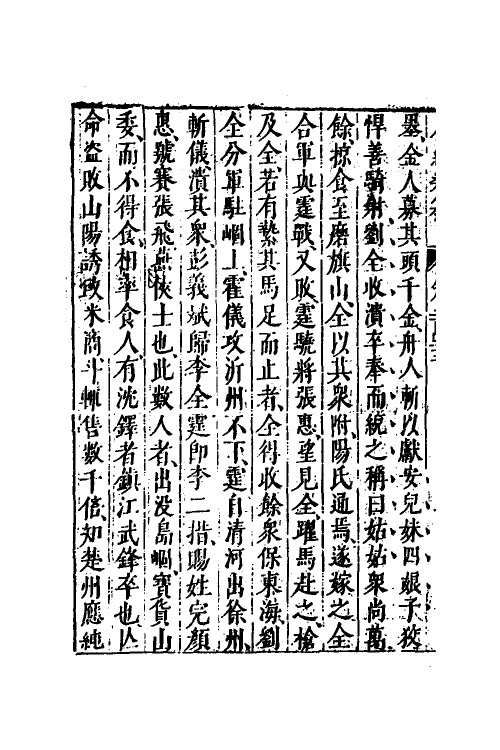 墨金人募其頭千金舟人斬以獻安兒妹四娘子狡
悍善騎射劉全收潰卒奉而統之稱曰姑姑衆尚萬
餘掠食至磨旗山全以其衆附陽氏通焉遂嫁之全
合軍與霆戰又敗霆驍將張惠望見全躍馬赴之槍
及全若有縶其馬足而止者全得收餘衆保東海劉
全分軍駐崓上霍儀攻沂州不下霆自清河出徐州
斬儀潰其衆彭義斌歸李全霆即李二措賜姓完顏
惠號賽張飛燕俠士也此數人者出没島崓寳貨山
委而不得食相率食人有沈鐸者鎮江武鋒卒也亾
命盜敗山陽誘致米商斗輒售數千倍知楚州應純